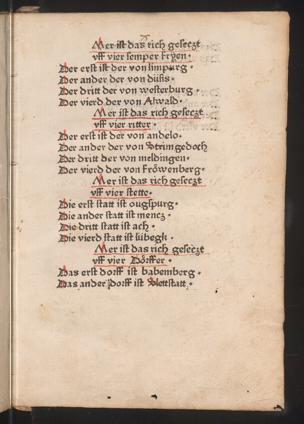 Mer ist das rich gesetzt
vff vier semper fryen.
Der erst ist der von limpurg.
Der ander der von düsis.
Der dritt der von westerburg.
Der vierd der von Alwald.
Mer ist das rich gesetzt
vff vier ritter.
Der erst ist der von andelo.
Der ander der von Strimgedoch
Der dritt der von meldingen.
Der vierd der von fröwenberg.
Mer ist das rich gesetzt
vff vier stette.
Die erst statt ist ougspurg.
Die ander statt ist mencz.
Die dritt statt ist ach.
Die vierd statt ist lübegk.
Mer ist das rich gesetzt
vff vier Dörffer.
Das erst dorff ist babemberg.
Das ander Dorff ist Slettstatt.